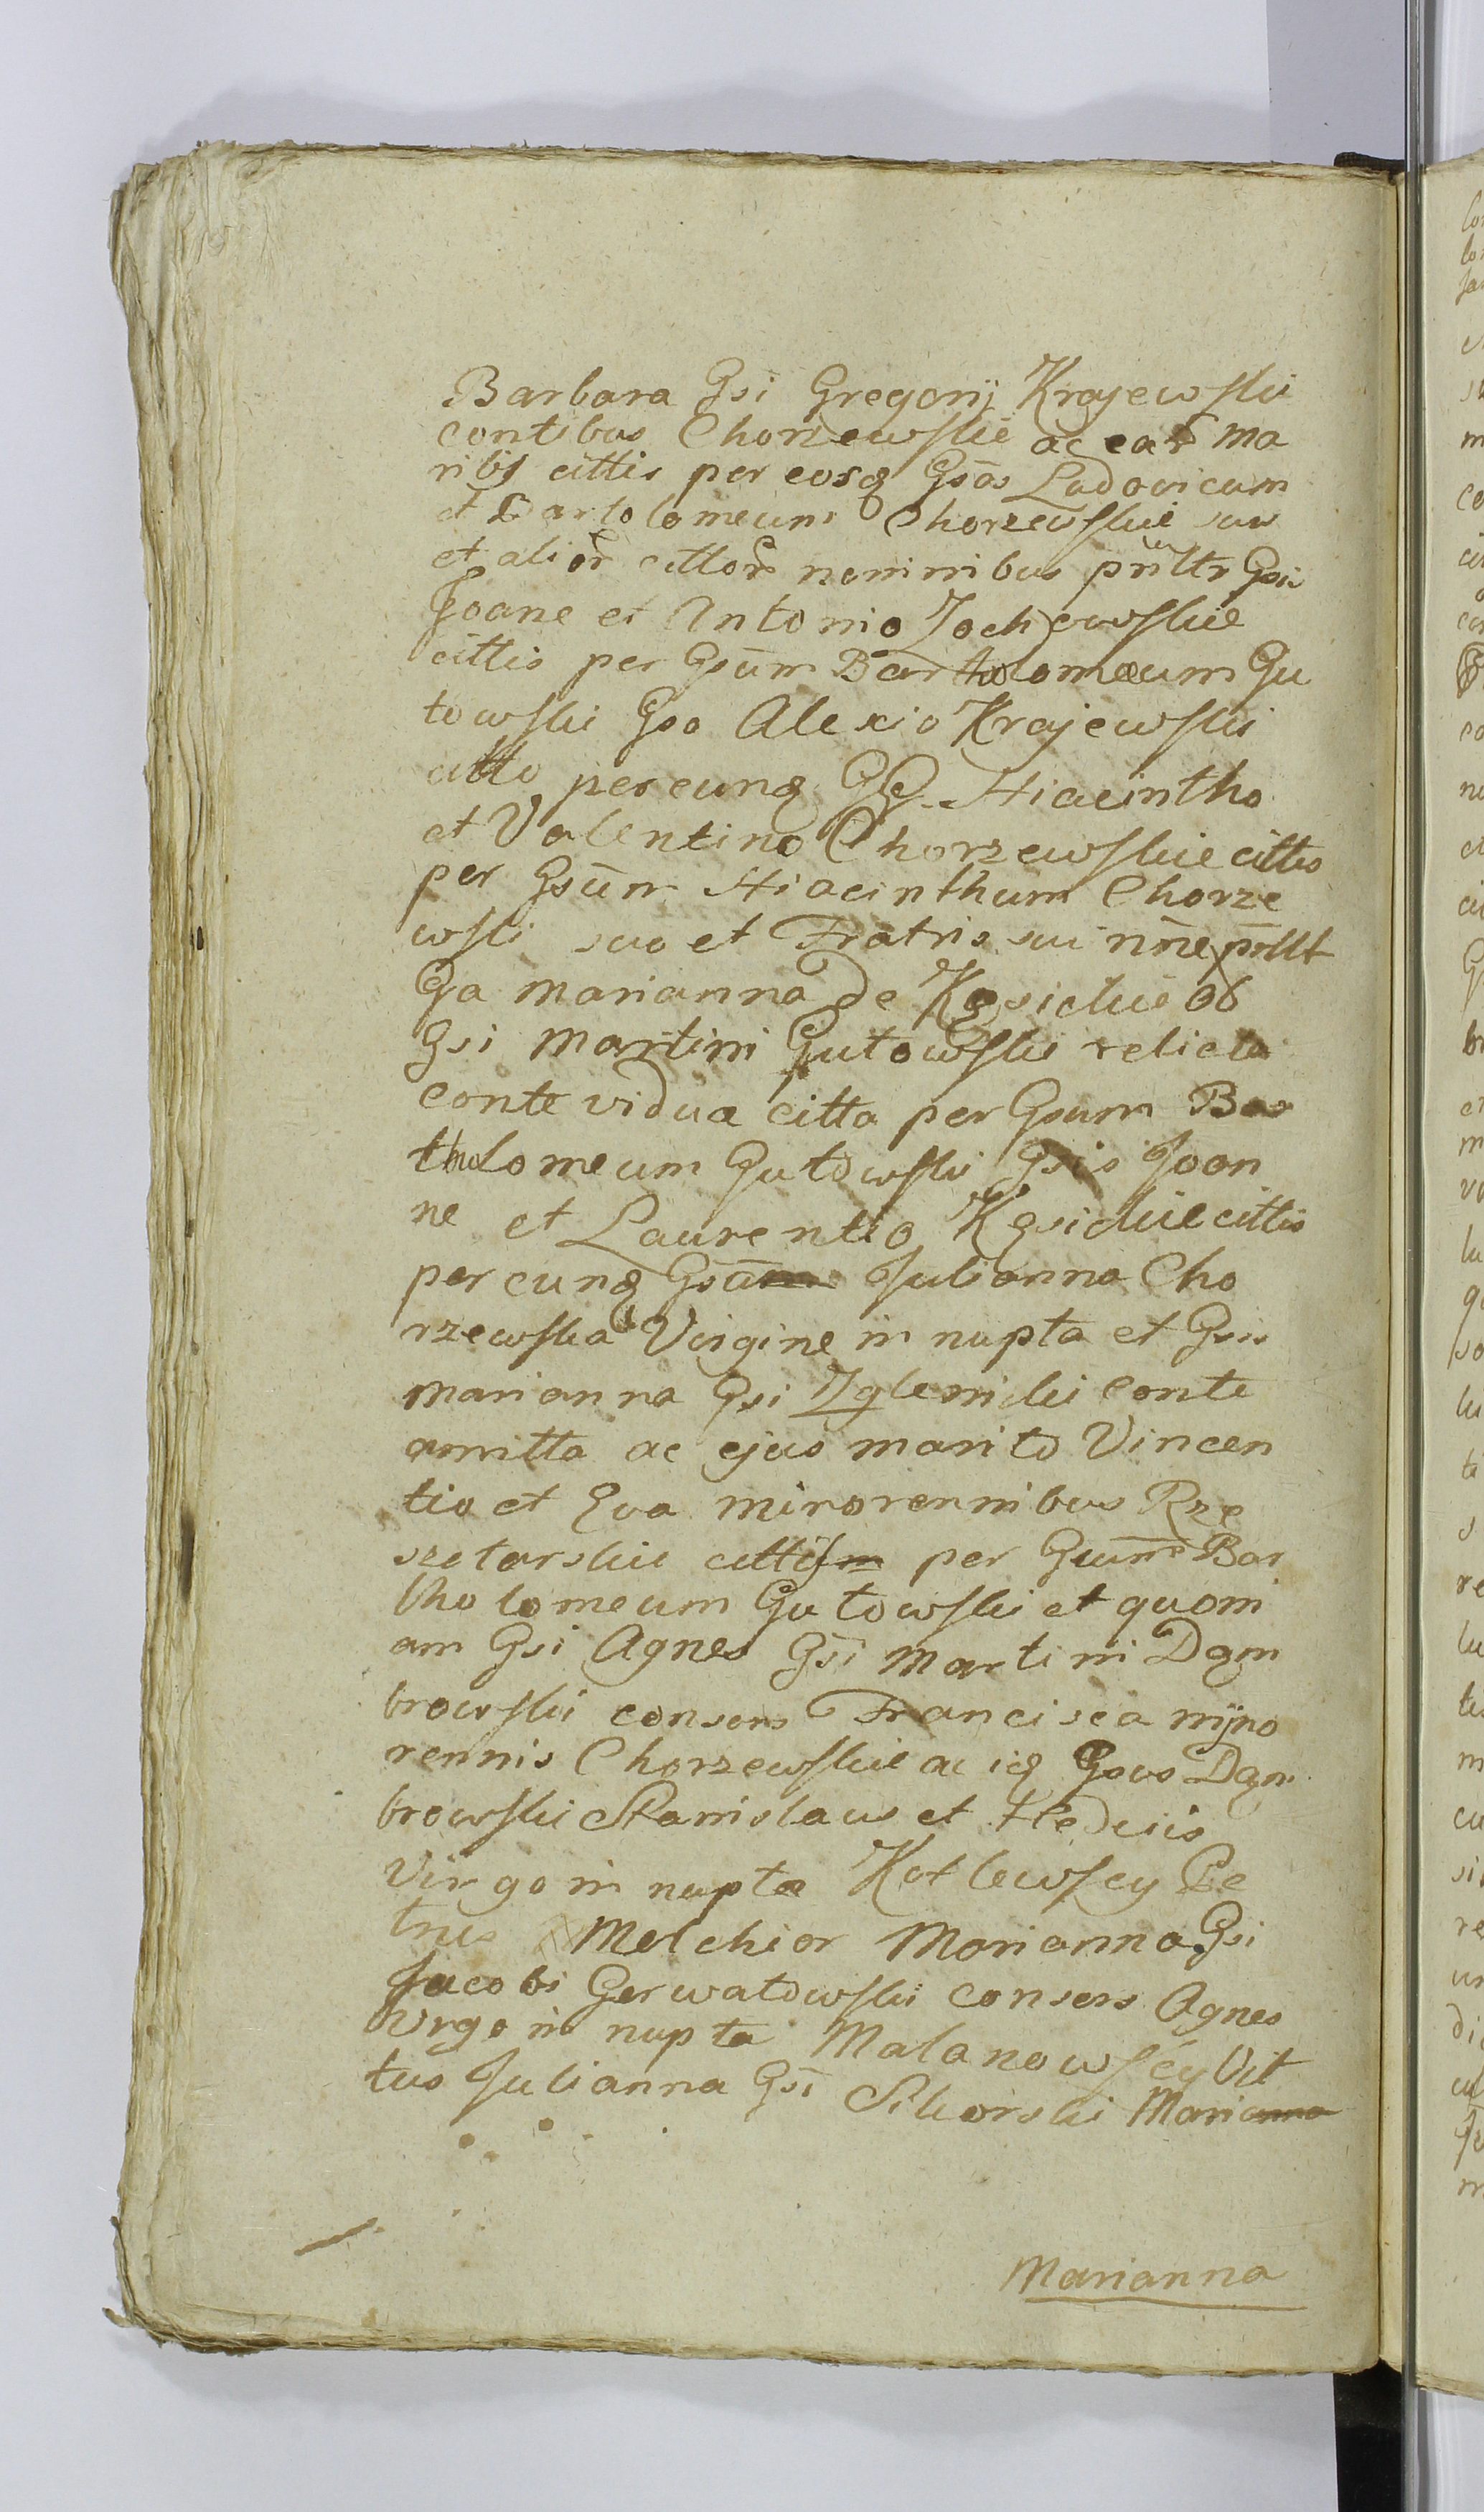 Barbara Gsi Gregorij Krajewski
contibus Chorzewskie ac ear ma
ritis cittis per eosq Gsōs Ludovicum
et Bartolomeum Chorzewskie suis
et alior cittor nominibus pnltr Gsis
Joane et Antonio Zochowskie
cittis per Gsūm Bartholomæum Gu
towski Gso Alexio Krajewski
citto per eunq GG. Hiacintho
et Valentino Chorzewskie cittis
per Gsūm Hiacinthum Chorze
wski suo et Fratris sui nñe pnllt
Ga Marianna de Kęsickie ob
Gsi Martini Gutowski relicta
conte vidua citta per Gsum Bar
tholomeum Gutowski Gsis Joan
ne et Laurentio Kęsickie cittis
per eunq Gsa Julianna Cho
rzewska Virgine in nupta et Gsis
Marianna Gsi Zglenicki conte
amitta ac ejus marito Vincen
tio et Eva minorennibus Rze
szotarskie cittis per Gsum Bar
tholomeum Gutowski et quoni
am Gsi Agnes Gsi Martini Dąm
browski consors Francisca mino
rennis Chorzewskie ac iq Gsus Dąm
browski Stanislaus et Hedvis
Virgo in nupta Kotlewscy Pe
trus Melchior Marianna Gsi
Jacobi Gerwatowski consors Agnes
Virgo in nupta Malanowscy Vit
tus Julianna Gsi Sikorski Marianna
Marianna